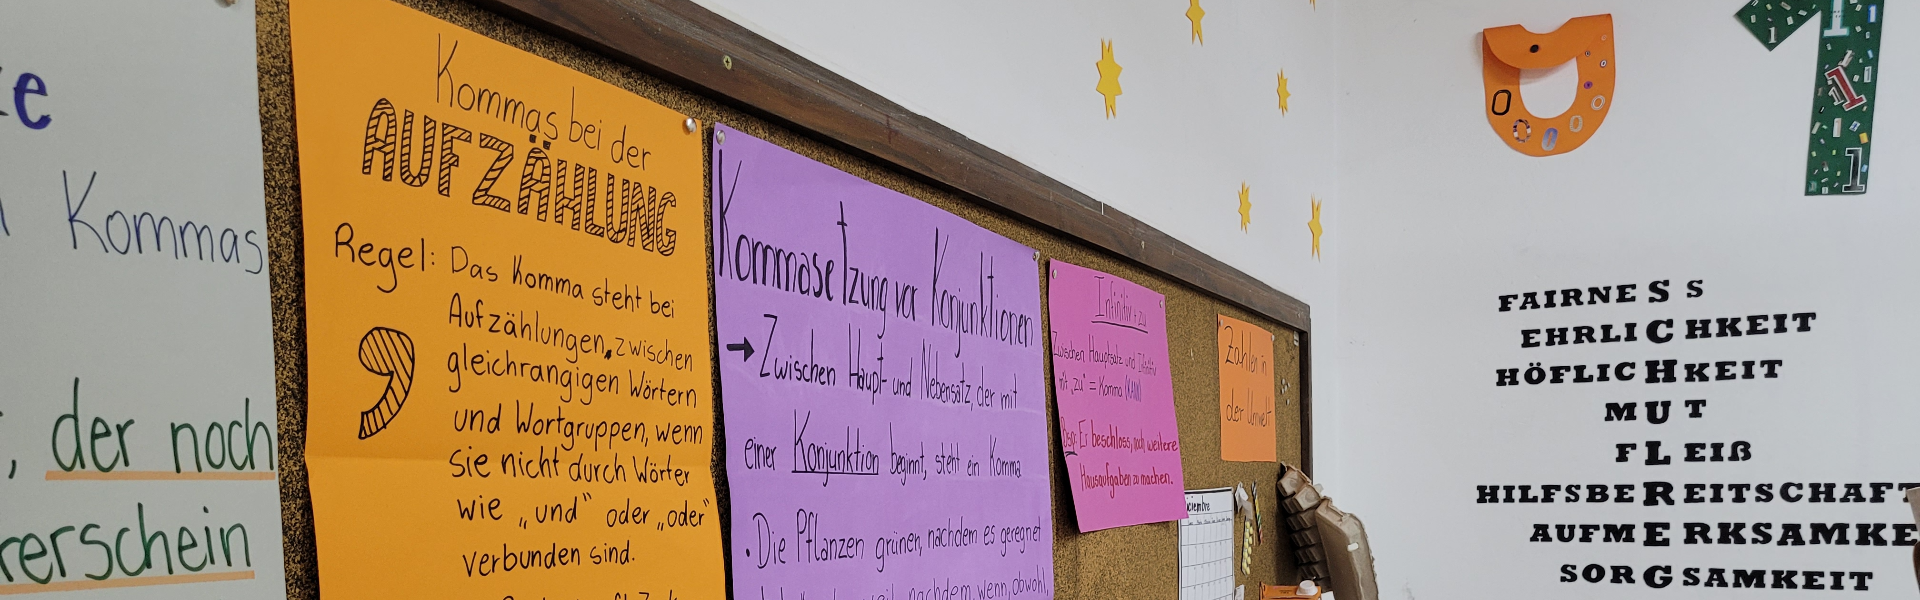 Kommas
, der noch
Kommas bei der
AUFZÄHLUNG
Regel: Das Komma steht bei
Aufzählungen, zwischen
gleichrangigen Wörtern
und Wortgruppen, wenn
sie nicht durch Wörter
wie „und“ oder „oder“
verbunden sind.
Kommasetzung vor Konjunktionen
→ Zwischen Haupt- und Nebensatz, der mit
einer Konjunktion beginnt, steht ein Komma
• Die Pflanzen grünen, nachdem es geregnet
nachdem, wenn, obwohl,
Infinitiv + zu
Zwischen Hauptsatz und Infinitiv
mit „zu“ = Komma (KANN)
Bsp: Er beschloss, noch weitere
Hausaufgaben zu machen.
Zahlen in
der Umwelt
0
0
0
0
1
1
1
1
FAIRNESS S
EHRLICHKEIT
HÖFLICHKEIT
MUT
FLEIß
HILFSBEREITSCHAFT
AUFMERKSAMKE
SORGSAMKEIT